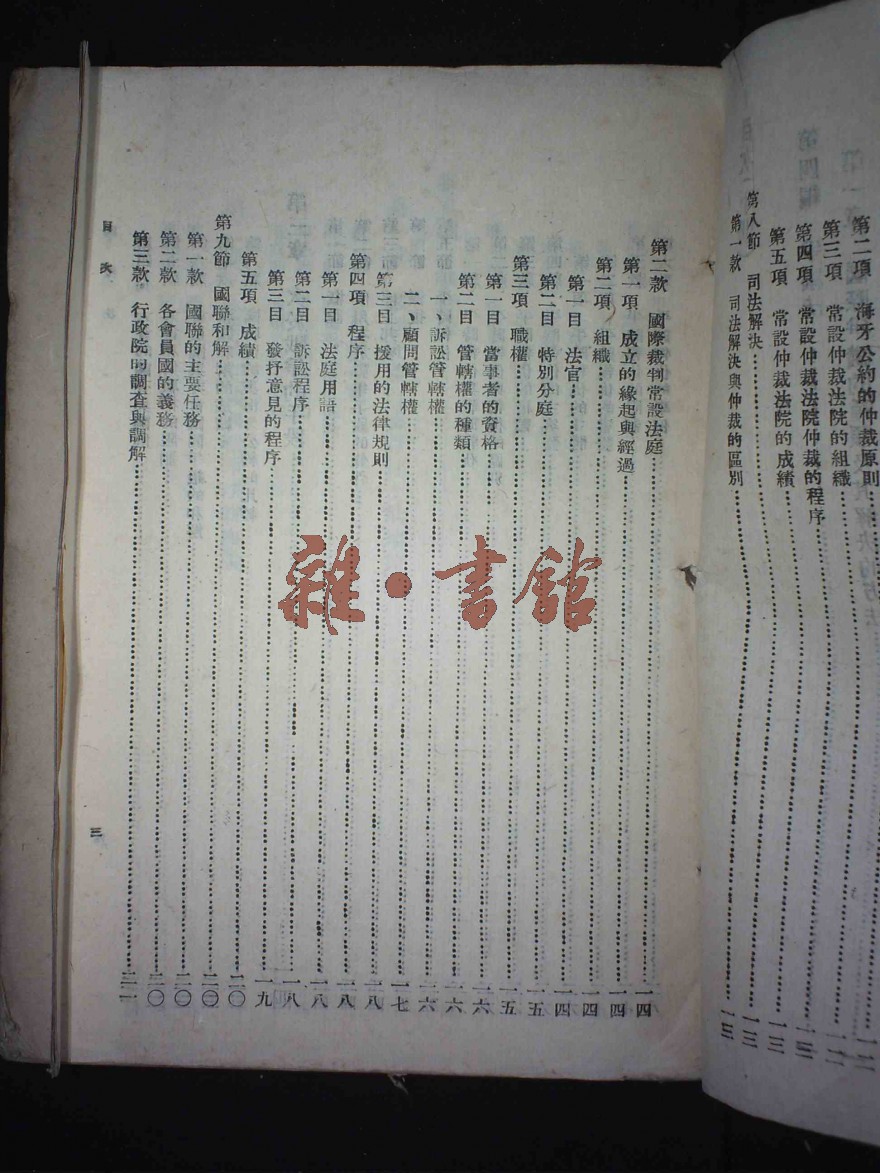 第二項　海牙公約的仲裁原則……一二
第三項　常設仲裁法院的組織……一二
第四項　常設仲裁法院仲裁的程序……一三
第五項　常設仲裁法院的成績……一三
第八節　司法解決……一三
第一款　司法解決與仲裁的區別……一三
第二款　國際裁判常設法庭……一四
第一項　成立的緣起與經過……一四
第二項　組織……一四
第一目　法官……一四
第二目　特別分庭……一五
第三項　職權……一五
第一目　當事者的資格……一六
第二目　管轄權的種類……一六
一、訴訟管轄權……一六
二、顧問管轄權……一七
第三目　援用的法律規則……一八
第四項　程序……一八
第一目　法庭用語……一八
第二目　訴訟程序……一八
第三目　發抒意見的程序……一九
第五項　成績……二〇
第九節　國聯和解……二〇
第一款　國聯的主要任務……二〇
第二款　各會員國的義務……二〇
第三款　行政院的調查與調解……二一
目次
三
雜·書館